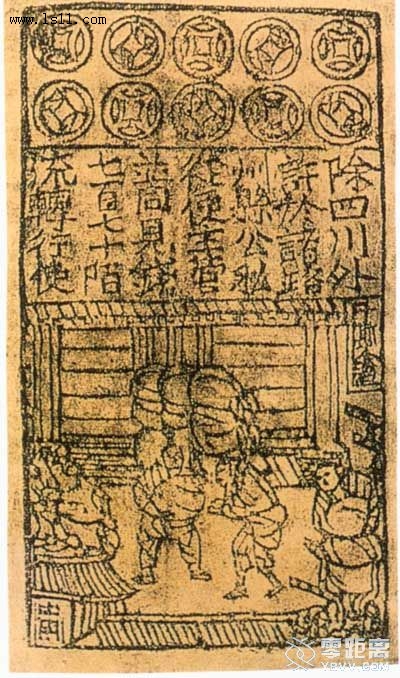 除四川外
許於諸路
州縣公私
從便主管
並同見錢
七百七十陌
流轉行使
零距离